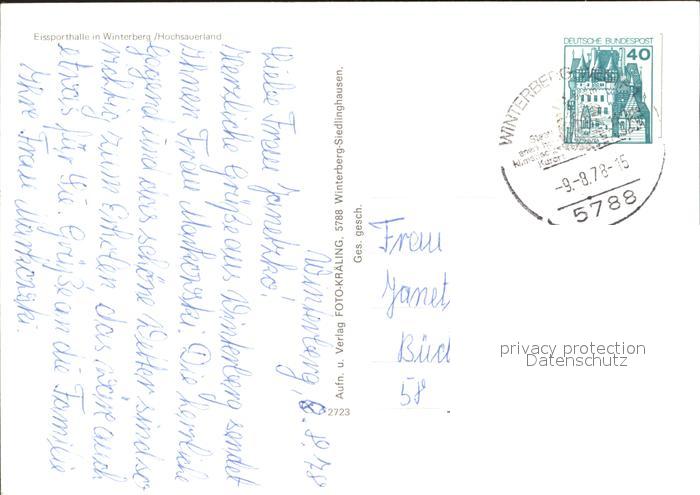 Eissporthalle in Winterberg /Hochsauerland
DEUTSCHE BUNDESPOST
40
WINTERBERG
-9.-8.78-15
5788
Winterberg, 6.8.78
Liebe Frau Janetzko!
Herzliche Grüße aus Winterberg sendet
Ihnen Frau Markowski. Die herrliche
Gegend und das schöne Wetter sind so
richtig zum Erholen das wäre auch
etwas für Sie. Grüße an die Familie
Ihre Frau Markowski.
Aufn. u. Verlag FOTO-KRÄLING, 5788 Winterberg-Siedlinghausen.
Ges. gesch.
2723
Frau
Janet
58
privacy protection
Datenschutz